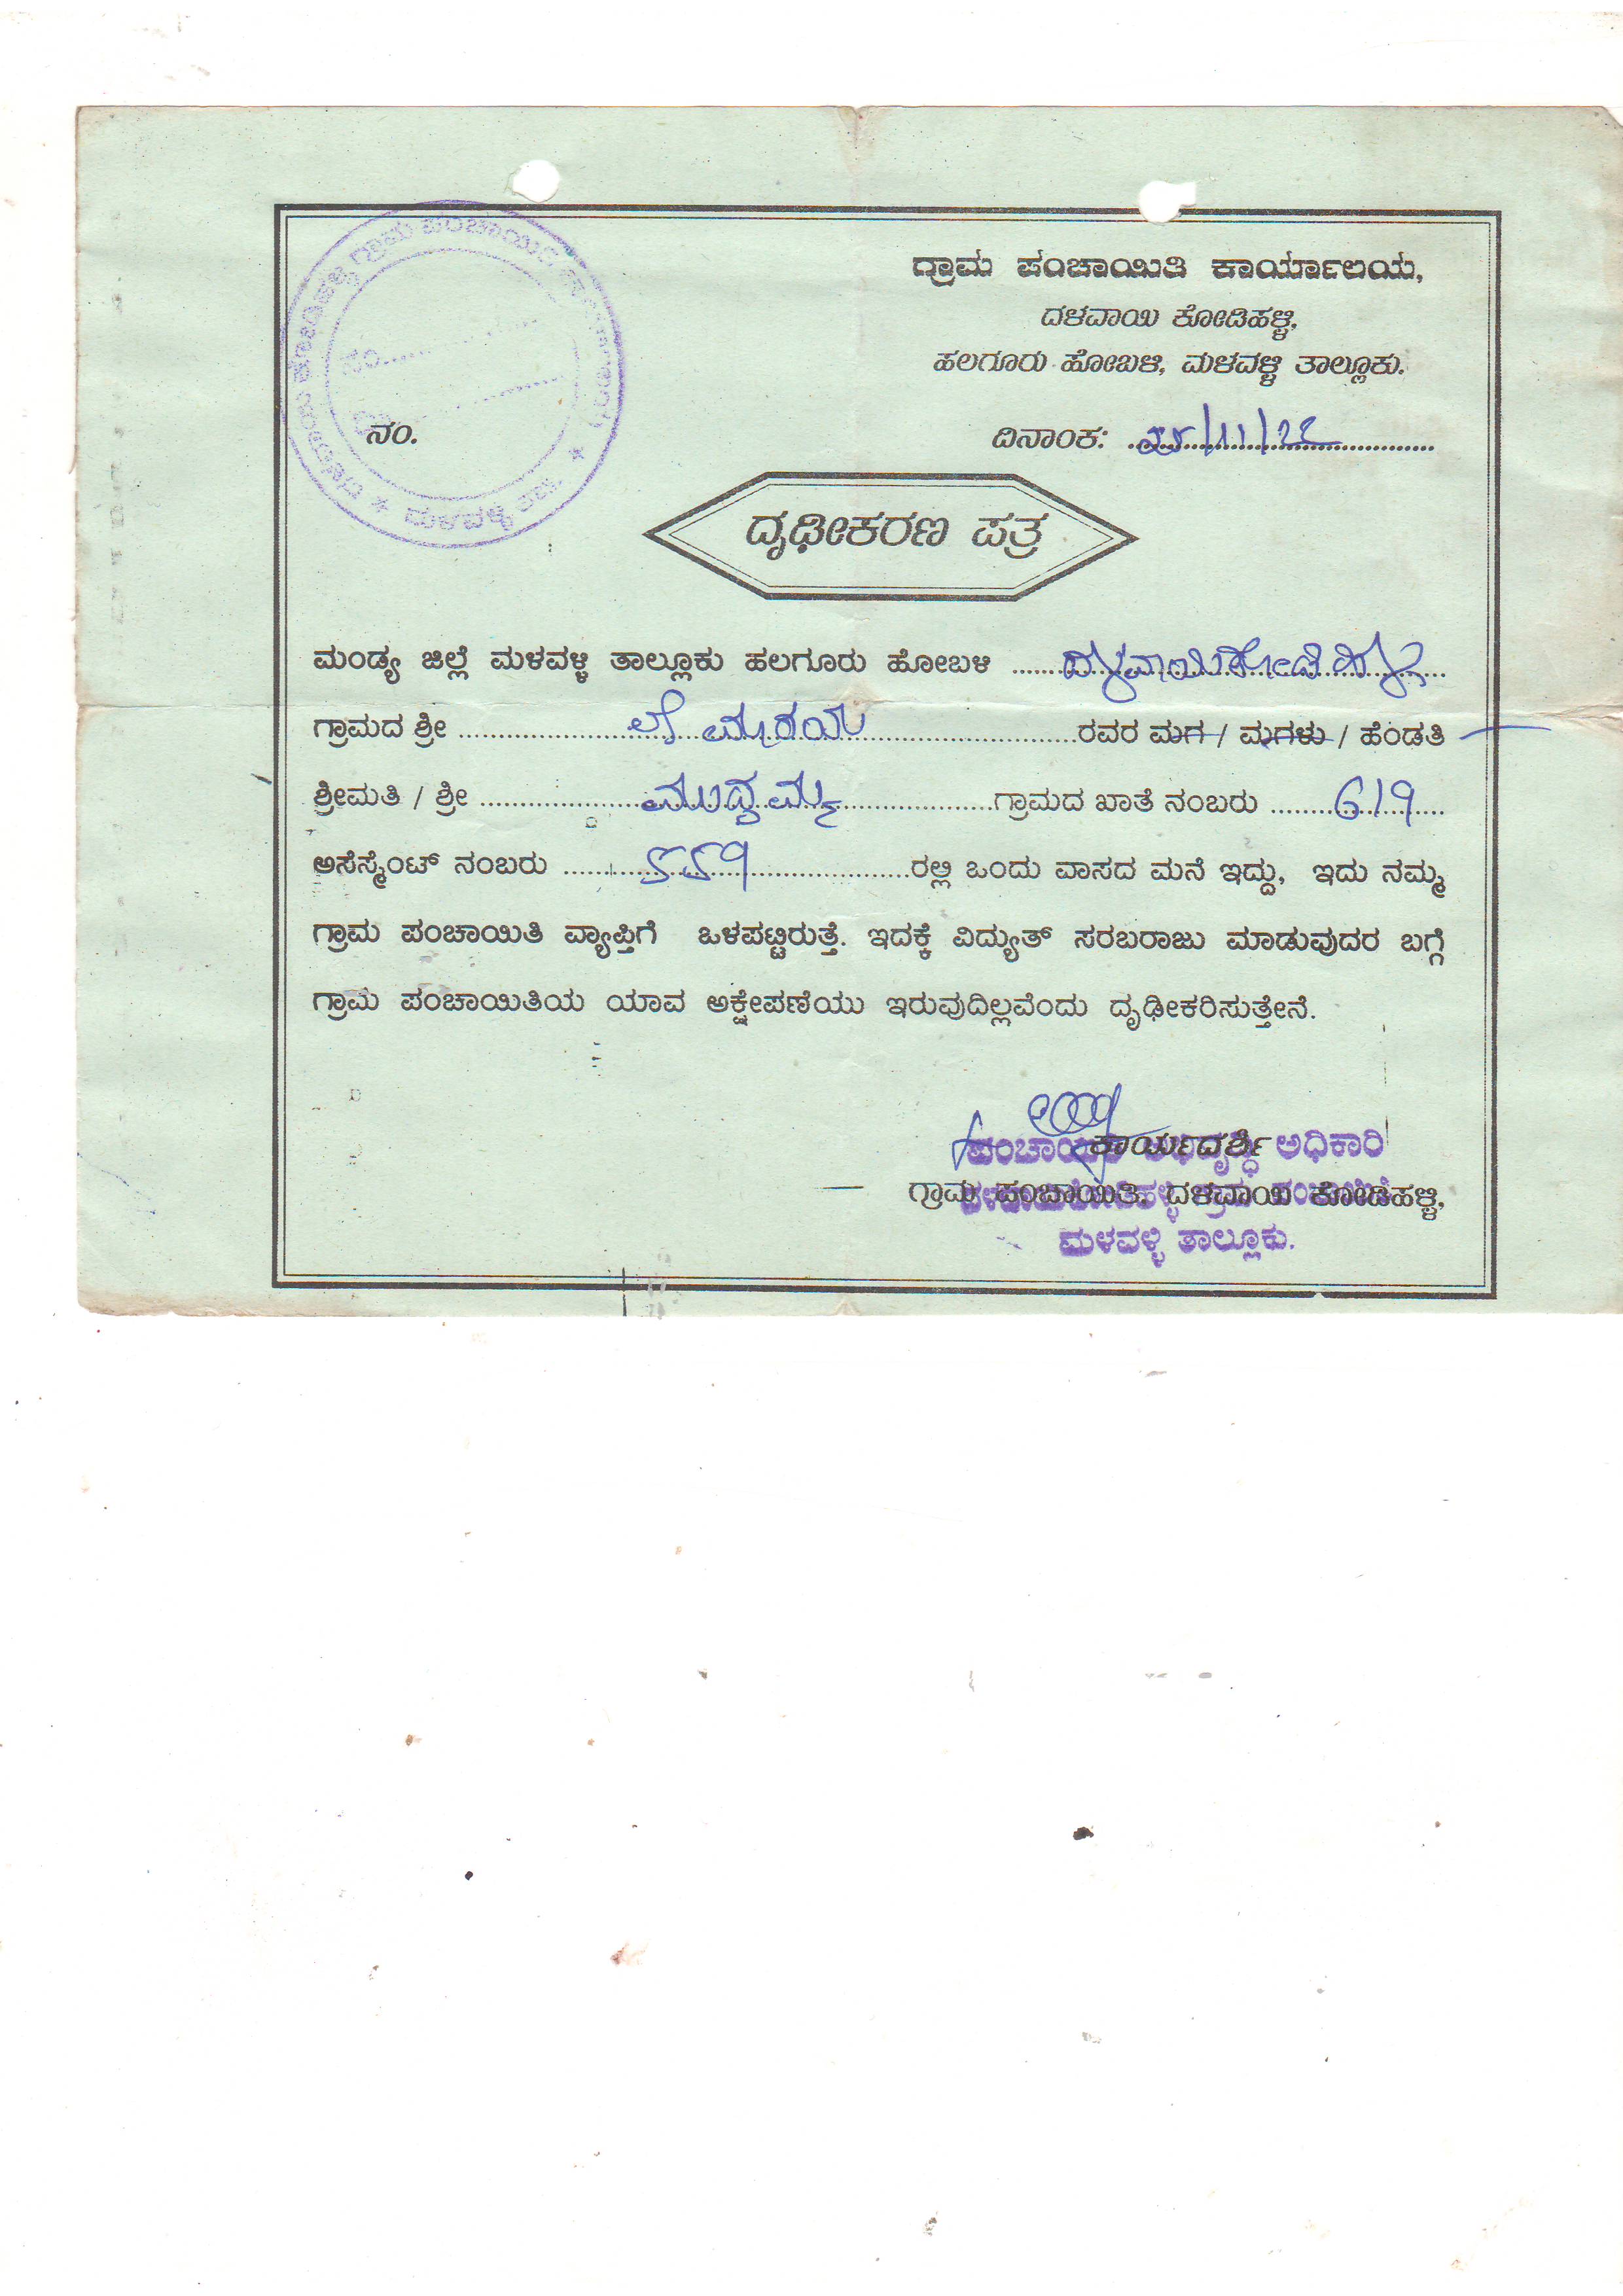 ದಳವಾಯಿ ಕೋಡಿಹಳ್ಳಿ ಗ್ರಾಮ ಪಂಚಾಯಿತಿ
ಮಳವಳ್ಳಿ ತಾ||
ನಂ.
ಗ್ರಾಮ ಪಂಚಾಯಿತಿ ಕಾರ್ಯಾಲಯ,
ದಳವಾಯಿ ಕೋಡಿಹಳ್ಳಿ,
ಹಲಗೂರು ಹೋಬಳಿ, ಮಳವಳ್ಳಿ ತಾಲ್ಲೂಕು.
ನಂ.
ದಿನಾಂಕ: 25/11/22
ದೃಢೀಕರಣ ಪತ್ರ
ಮಂಡ್ಯ ಜಿಲ್ಲೆ ಮಳವಳ್ಳಿ ತಾಲ್ಲೂಕು ಹಲಗೂರು ಹೋಬಳಿ ದಳವಾಯಿಕೋಡಿಹಳ್ಳಿ
ಗ್ರಾಮದ ಶ್ರೀ ರವರ ಮಗ / ಮಗಳು / ಹೆಂಡತಿ
ಶ್ರೀಮತಿ / ಶ್ರೀ ಮುದ್ದಮ್ಮ ಗ್ರಾಮದ ಖಾತೆ ನಂಬರು 619
ಅಸೆಸ್ಮೆಂಟ್ ನಂಬರು 559 ರಲ್ಲಿ ಒಂದು ವಾಸದ ಮನೆ ಇದ್ದು, ಇದು ನಮ್ಮ
ಗ್ರಾಮ ಪಂಚಾಯಿತಿ ವ್ಯಾಪ್ತಿಗೆ ಒಳಪಟ್ಟಿರುತ್ತೆ. ಇದಕ್ಕೆ ವಿದ್ಯುತ್ ಸರಬರಾಜು ಮಾಡುವುದರ ಬಗ್ಗೆ
ಗ್ರಾಮ ಪಂಚಾಯಿತಿಯ ಯಾವ ಅಕ್ಷೇಪಣೆಯು ಇರುವುದಿಲ್ಲವೆಂದು ದೃಢೀಕರಿಸುತ್ತೇನೆ.
ಕಾರ್ಯದರ್ಶಿ
ಅಧಿಕಾರಿ
ಗ್ರಾಮ ಪಂಚಾಯಿತಿ, ದಳವಾಯಿ ಕೋಡಿಹಳ್ಳಿ,
ಮಳವಳ್ಳಿ ತಾಲ್ಲೂಕು.